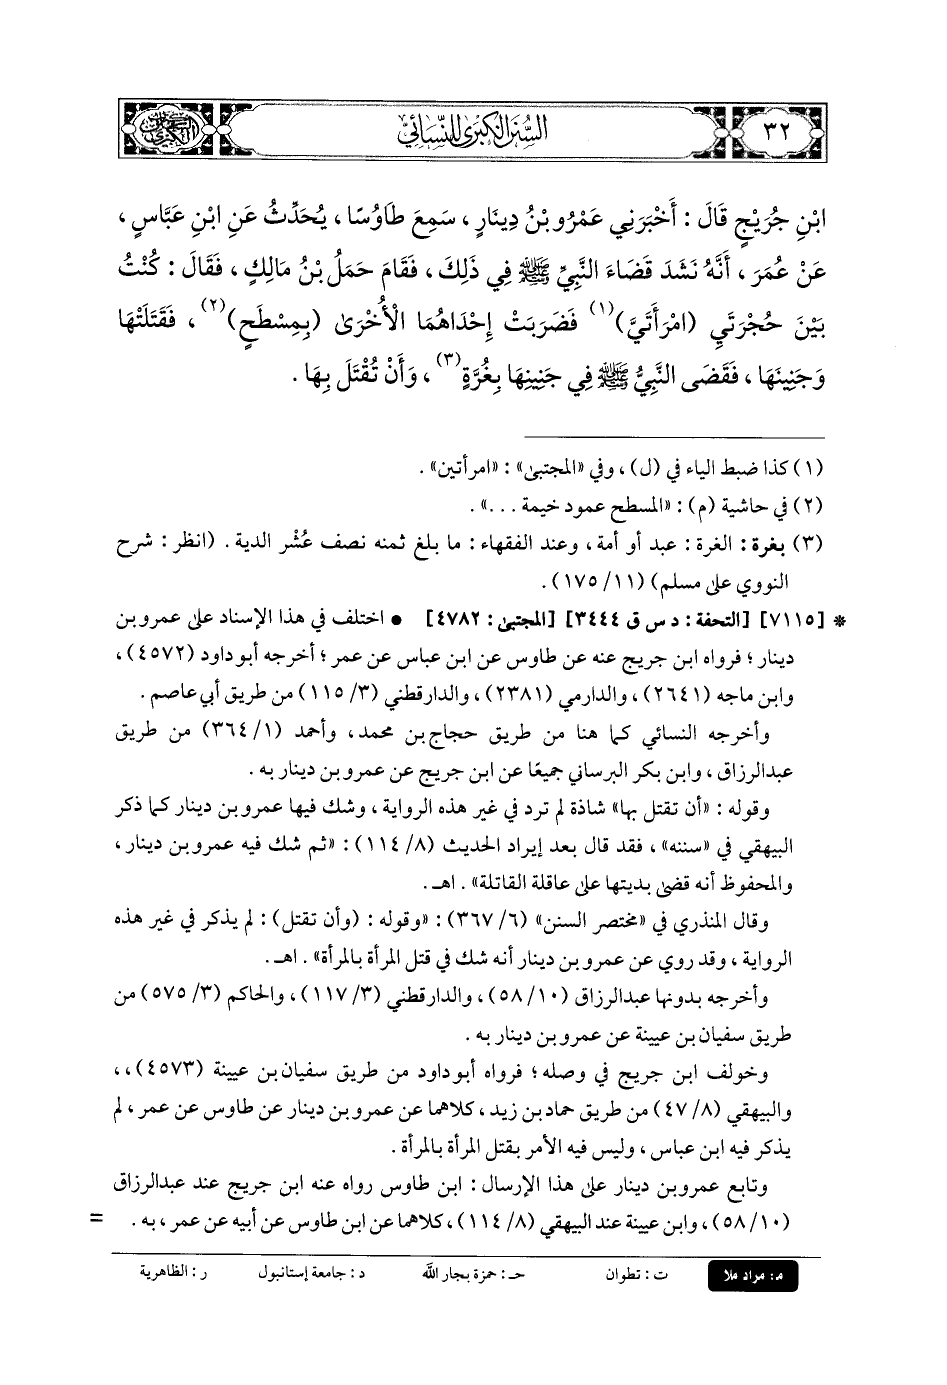 ٣٢
السنن الكبرى للنسائي
ابْنِ جُرَيْجٍ قَالَ : أَخْبَرَنِي عَمْرُو بْنُ دِينَارٍ ، سَمِعَ طَاوُسًا ، يُحَدِّثُ عَنِ ابْنِ عَبَّاسٍ ،
عَنْ عُمَرَ ، أَنَّهُ نَشَدَ قَضَاءَ النَّبِيِّ ﷺ فِي ذَلِكَ ، فَقَامَ حَمَلُ بْنُ مَالِكٍ ، فَقَالَ : كُنْتُ
بَيْنَ حُجْرَتَيِ (امْرَأَتَيَّ)(١) فَضَرَبَتْ إِحْدَاهُمَا الْأُخْرَىٰ (بِمِسْطَحٍ)(٢) ، فَقَتَلَتْهَا
وَجَنِينَهَا ، فَقَضَى النَّبِيُّ ﷺ فِي جَنِينِهَا بِغُرَّةٍ(٣) ، وَأَنْ تُقْتَلَ بِهَا .
(١) كذا ضبط الياء في (ل) ، وفي «المجتبى» : «امرأتين» .
(٢) في حاشية (م) : «المسطح عمود خيمة ...» .
(٣) بغرة : الغرة : عبد أو أمة ، وعند الفقهاء : ما بلغ ثمنه نصف عُشْر الدية . (انظر : شرح
النووي على مسلم) (١١/ ١٧٥) .
* [٧١١٥] [التحفة : د س ق ٣٤٤٤] [المجتبى : ٤٧٨٢] • اختلف في هذا الإسناد على عمرو بن
دينار ؛ فرواه ابن جريج عنه عن طاوس عن ابن عباس عن عمر ؛ أخرجه أبو داود (٤٥٧٢) ،
وابن ماجه (٢٦٤١) ، والدارمي (٢٣٨١) ، والدارقطني (٣/ ١١٥) من طريق أبي عاصم .
وأخرجه النسائي كما هنا من طريق حجاج بن محمد ، وأحمد (١/ ٣٦٤) من طريق
عبدالرزاق ، وابن بكر البرساني جميعًا عن ابن جريج عن عمرو بن دينار به .
وقوله : «أن تقتل بها» شاذة لم ترد في غير هذه الرواية ، وشك فيها عمرو بن دينار كما ذكر
البيهقي في «سننه» ، فقد قال بعد إيراد الحديث (٨/ ١١٤) : «ثم شك فيه عمرو بن دينار ،
والمحفوظ أنه قضى بديتها على عاقلة القاتلة» . اهـ .
وقال المنذري في «مختصر السنن» (٦/ ٣٦٧) : «وقوله : (وأن تقتل) : لم يذكر في غير هذه
الرواية ، وقد روي عن عمرو بن دينار أنه شك في قتل المرأة بالمرأة» . اهـ .
وأخرجه بدونها عبدالرزاق (١٠/ ٥٨) ، والدارقطني (٣/ ١١٧) ، والحاكم (٣/ ٥٧٥) من
طريق سفيان بن عيينة عن عمرو بن دينار به .
وخولف ابن جريج في وصله ؛ فرواه أبو داود من طريق سفيان بن عيينة (٤٥٧٣) ، ،
والبيهقي (٨/ ٤٧) من طريق حماد بن زيد ، كلاهما عن عمرو بن دينار عن طاوس عن عمر ، لم
يذكر فيه ابن عباس ، وليس فيه الأمر بقتل المرأة بالمرأة .
وتابع عمرو بن دينار على هذا الإرسال : ابن طاوس رواه عنه ابن جريج عند عبدالرزاق
(١٠/ ٥٨) ، وابن عيينة عند البيهقي (٨/ ١١٤) ، كلاهما عن ابن طاوس عن أبيه عن عمر ، به . =
م: مراد ملا ت : تطوان حـ : حمزة بجار الله د : جامعة إستانبول ر : الظاهرية